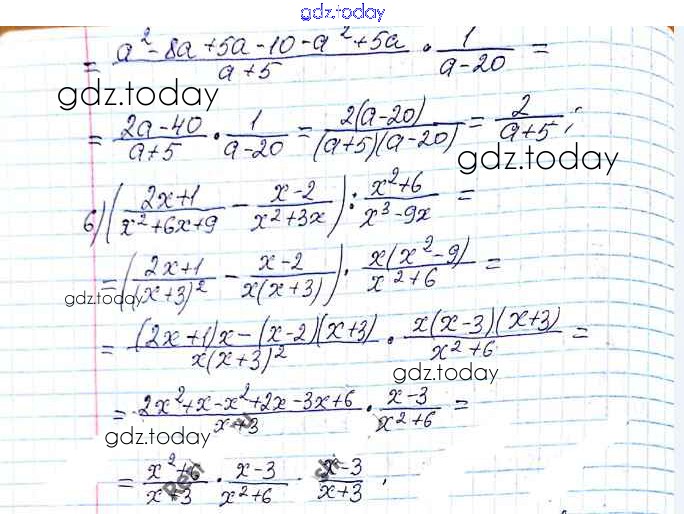 gdz.today
= (a² - 8a + 5a - 10 - a² + 5a)/(a+5) · 1/(a-20) =
gdz.today
= (2a-40)/(a+5) · 1/(a-20) = 2(a-20)/((a+5)(a-20)) = 2/(a+5);
gdz.today
б) ((2x+1)/(x²+6x+9) - (x-2)/(x²+3x)) : (x²+6)/(x³-9x) =
= ((2x+1)/(x+3)² - (x-2)/(x(x+3))) · x(x²-9)/(x²+6) =
gdz.today
= ((2x+1)x-(x-2)(x+3))/(x(x+3)²) · x(x-3)(x+3)/(x²+6) =
gdz.today
= (2x²+x-x²+2x-3x+6)/(x+3) · (x-3)/(x²+6) =
gdz.today
= (x²+6)/(x+3) · (x-3)/(x²+6) = (x-3)/(x+3).